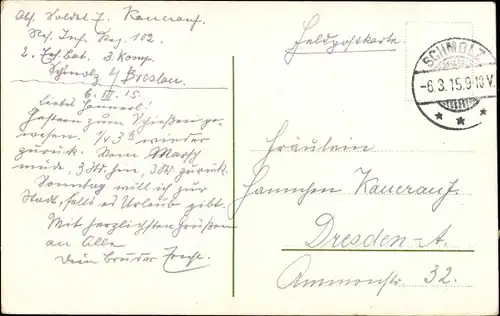 Abs. Soldat F. Kaucrauf.
Res. Inf. Reg. 102.
2. Ers. Bat. 3. Komp.
Schmolz b/ Breslau.
6. III. 15.
Liebes Hannerl!
Gestern zum Schießen ge-
wesen. 1/4 3 wieder
zurück. Vom Marsch
müde, 3 Std. hin, 3 Std. zurück.
Sonntag will ich zur
Stadt, falls es Urlaub gibt.
Mit herzlichsten Grüßen
an Alle
Dein Bruder
Feldpostkarte.
SCHMOLZ
-6.3.15.9-10V.
Fräulein
Hannchen Kaucrauf.
Dresden-A.
Ammonstr. 32.